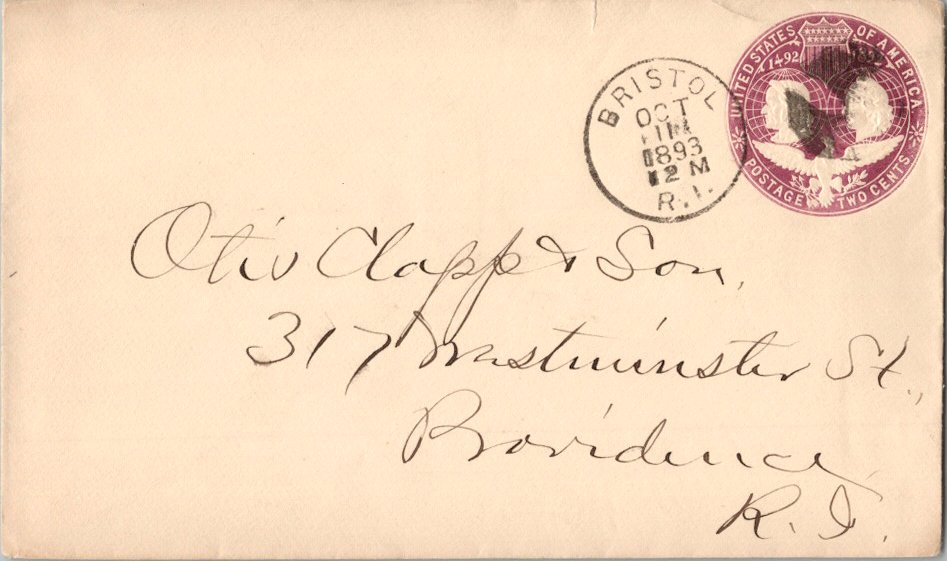 UNITED STATES OF AMERICA
1492
POSTAGE TWO CENTS
BRISTOL
OCT
1893
12 M
R.I.
Otis Clapp & Son,
317 Westminster St.,
Providence
R. I.